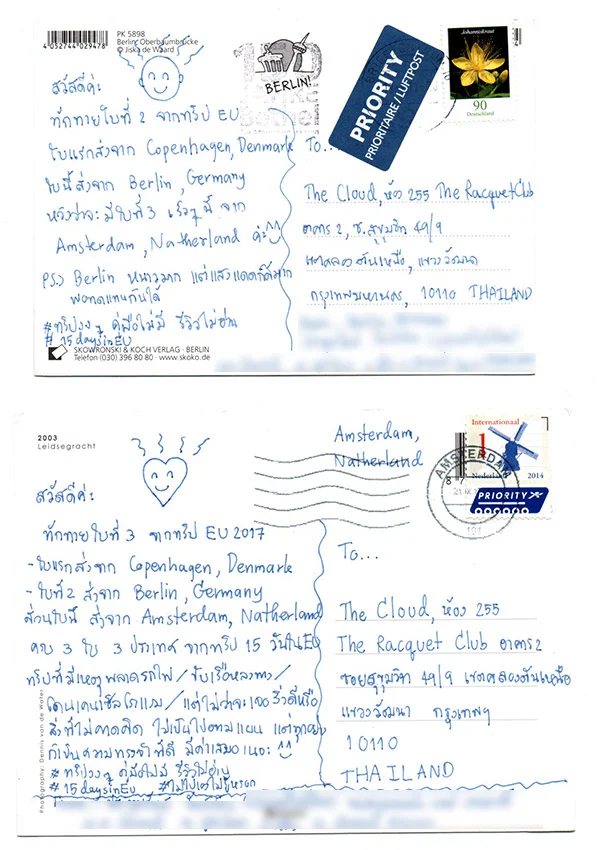 4 052744 029478
PK 5898
Berlin, Oberbaumbrücke
© Jiska de Waard
BERLIN!
PRIORITY
PRIORITAIRE / LUFTPOST
Johanniskraut
90
Deutschland
สวัสดีค่ะ
ทักทายใบที่ 2 จากทริป EU
ใบแรกส่งจาก Copenhagen, Denmark
ใบนี้ส่งจาก Berlin, Germany
หวังว่าจะมีใบที่ 3 เร็วๆ นี้ จาก
Amsterdam, Natherland ค่ะ
P.S.) Berlin หนาวมาก แต่แสงแดดก็ดีมาก
พอทดแทนกันได้
#ทริปงงๆ คู่มือไม่มี รีวิวไม่อ่าน
#15daysinEU
SKOWRONSKI & KOCH VERLAG · BERLIN
Telefon (030) 396 80 80 · www.skoko.de
To...
The Cloud, ห้อง 255 The Racquet Club
อาคาร 2, ซ.สุขุมวิท 49/9
เขตคลองตันเหนือ, แขวงวัฒนา
กรุงเทพมหานคร, 10110 THAILAND
2003
Leidsegracht
Amsterdam,
Natherland
AMSTERDAM
Internationaal
1
Nederland 2014
PRIORITY
สวัสดีค่ะ
ทักทายใบที่ 3 จากทริป EU 2017
-ใบแรกส่งจาก Copenhagen, Denmark
-ใบที่ 2 ส่งจาก Berlin, Germany
ส่วนใบนี้ ส่งจาก Amsterdam, Natherland
ครบ 3 ใบ 3 ประเทศ จากทริป 15 วันใน EU
ทริปที่มีเหตุพลาดรถไฟ/ขึ้นเรือหลงทาง/
โดนแคนเซิลโรงแรม/แต่ไม่ว่าจะเจอสิ่งดีหรือ
สิ่งที่ไม่คาดคิด ไม่เป็นไปตามแผน แต่ทุกอย่าง
ก็เป็นความทรงจำที่ดี มีค่าเสมอเนอะ
#ทริปงงๆ คู่มือไม่มี รีวิวไม่อ่าน
#15daysinEU
Photography: Dennis van de Water
To...
The Cloud, ห้อง 255
The Racquet Club อาคาร 2
ซอยสุขุมวิท 49/9 เขตคลองตันเหนือ
แขวงวัฒนา กรุงเทพฯ
10110
THAILAND